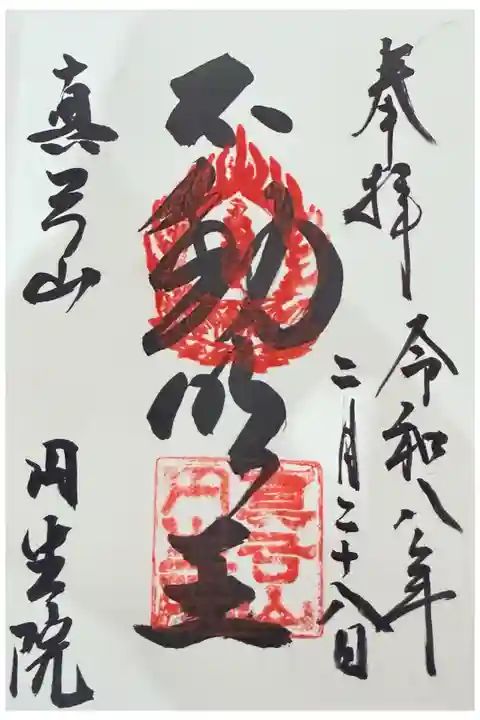 奉拝
令和八年
二月二十八日
不動明王
真弓山
円生院